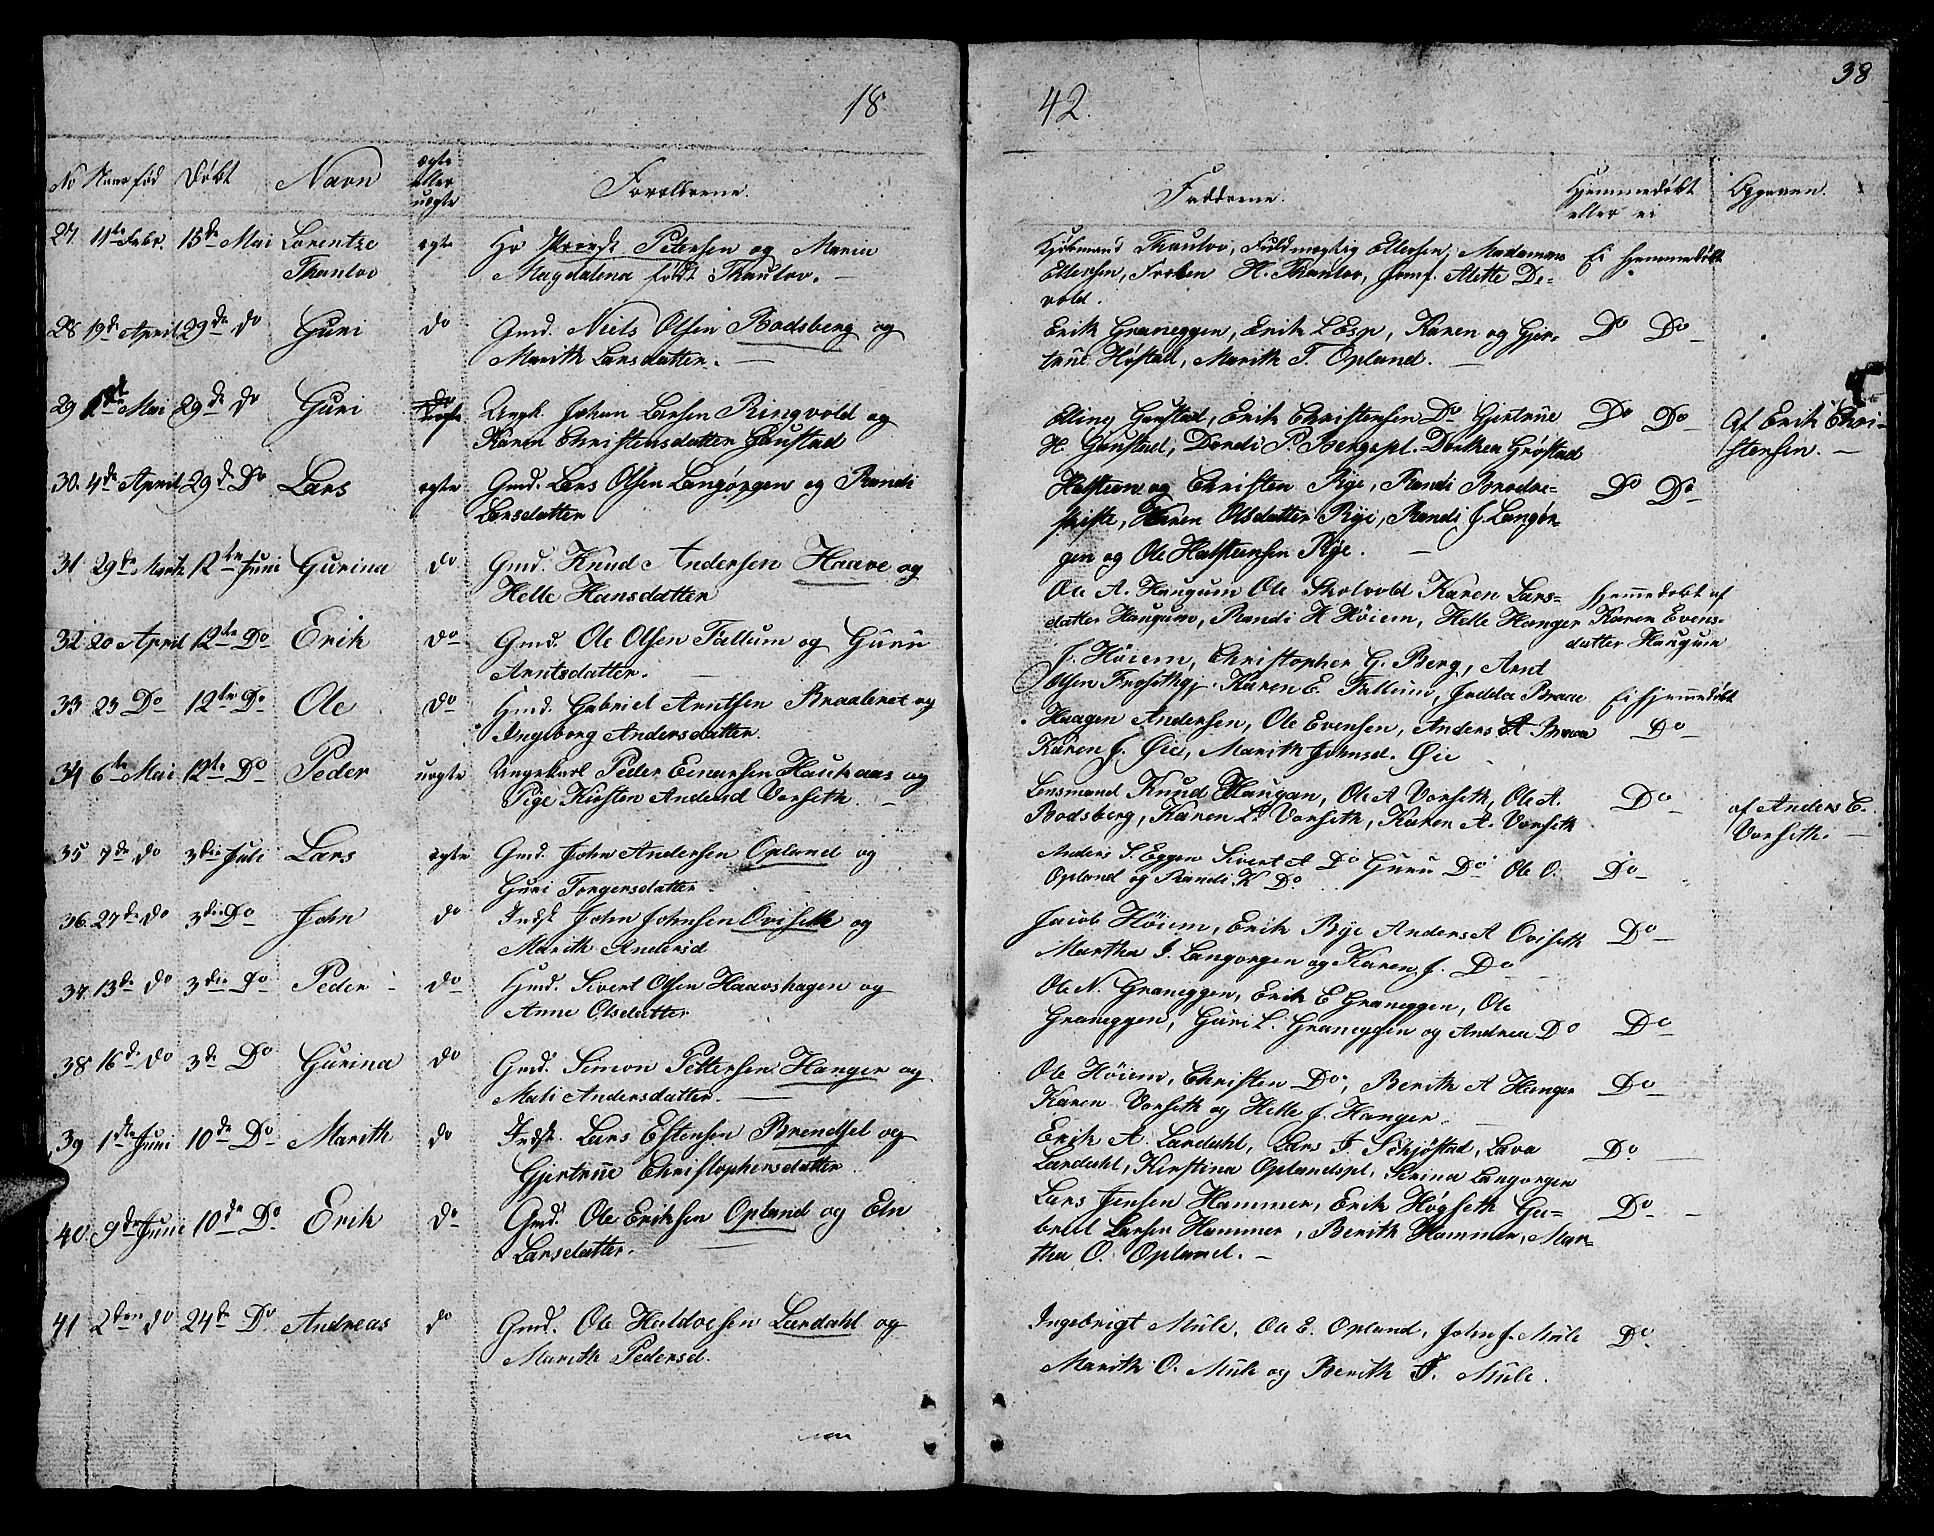 38
18 42.
No Naar fød Døbt Navn ægte eller uægte Forældrene. Faddrene. Hjemmedøbt eller ei Opgaven.
27. 11te Febr. 15de Mai Lorentze Thaulov egte Hr Provst Petersen og Maria
Magdalena født Thaulov. —
Kjøbmand Thaulov, Fuldmægtig Ellersen, Madamen Ei hjemmedøbt
Ellersen, Froken H. Thaulov, Jomf. Alette De-
vold.
28 19de April 29de do Guri do Gmd. Niels Olsen Bodsberg og
Marith Larsdatter. —
Erik Graneggen, Erik L Esp, Karen og Gjer- Do Do
trüe Høstad, Marith T. Opland. —
29 Mai 29de do Guri Ungk. Johan Larsen Ringvold og
Karen Christensdatter Gaustad
Elling Gaustad, Erik Christensen Do Gjertrüe Do Do Af Erik Chri-
H. Gaustad, Dordi P. Bergspl. Dorthea Grøstad stensen. —
30. 4de April 29de Do Lars egte Gmd. Lars Olsen Langørgen og Randi
Larsdatter
Halsten og Christen Rye, Randi Brodre- Do Do
skifte, Karen Olsdatter Rye, Randi J. Langør-
gen og Ole Halstensen Rye. —
31 29de Marts 12te Juni Gurina do Gmd. Knud Andersen Haave og
Helle Hansdatter
Ole A. Haugum Ole Skolvold Karen Lars- Hjemmedøbt af
datter Haugum, Randi H Høiem, Helle Hanger Karen Evens-
datter Haugum
32 20 April 12te Do Erik do Gmd. Ole Olsen Tallum og Guru
Arntsdatter. —
J. Høiem, Christopher G. Berg, Arnt
Olsen Frosethgj. Karen E. Tallum, Jedda Braa Ei hjemmedøbt
33 23 Do 12te Do Ole do Hmd. Gabriel Arntsen Braaleret og
Ingeborg Andersdatter.
Haagen Andersen, Ole Evensen, Anders A Braa Do
Karen J. Øie, Marith Johnsd. Øie
34 6te Mai 12te Do Peder uegte Ungekarl Peder Einarsen Haukaas og
Pige Kirsten Andersd Vorseth. —
Lensmand Knud Haugan, Ole A Vorseth, Ole A. Do af Anders E.
Bodsberg, Karen L. Vorseth, Karen A. Vorseth Vorseth. —
35 7de do 3die Juli Lars egte Gmd. John Andersen Opland og
Guri Torgersdatter.
Anders S. Eggen Sivert A Do Guru Do Ole O. Do
Opland og Randi K Do
36. 27de do 3die Do John do Indst. John Johnsen Oviseth og
Marith Andersd
Jacob Høiem, Erik Rye Anders A Oviseth Do
Martha J. Langorgen og Karen J. Do
37. 13de do 3die do Peder do Hmd. Sivert Olsen Haavshagen og
Anne Olsdatter
Ole N. Graneggen, Erik E Graneggen, Ole
Graneggen, Guri L. Graneggen og Andrea Do Do
38 16de do 3de Do Gurina do Gmd. Simon Pettersen Hanger og
Mali Andersdatter. —
Ole Høiem, Christen Do, Berith A Hanger Do
Karen Vorseth og Helle J. Hanger.
39 1ste Juni 10de Do Marith do Indst. Lars Estensen Brendsel og
Gjertrüe Christophersdatter.
Erik A. Lerdahl, Lars J. Schjøstad, Lava Do
Lardahl, Kirstina Oplandspl, Serina Langorgen
40. 9de Juni 10de Do Erik do Gmd. Ole Eriksen Opland og Eln
Larsdatter. —
Lars Jensen Hammer, Erik Høgseth Ga- Do
briel Larsen Hammer, Berith Hammer, Mar-
tha O. Opland. —
41 2den do 24de Do Andreas do Gmd. Ole Haldorsen Lerdahl og
Marith Pedersd.
Ingebrigt Müle, Ole E. Opland, John J. Müle Do
Marith O. Müle og Berith T. Müle.